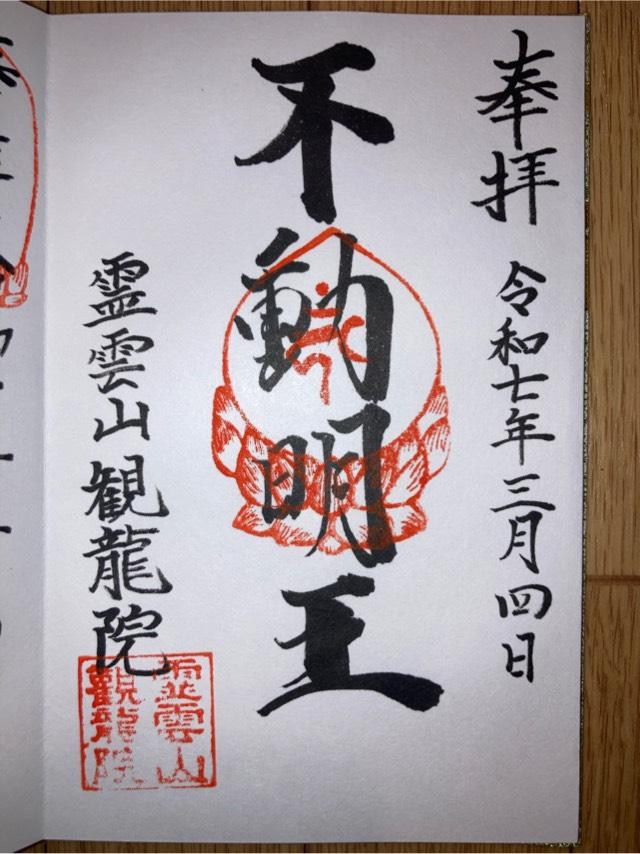 奉拝
令和七年三月四日
不動明王
霊雲山観龍院
霊雲山
観龍院